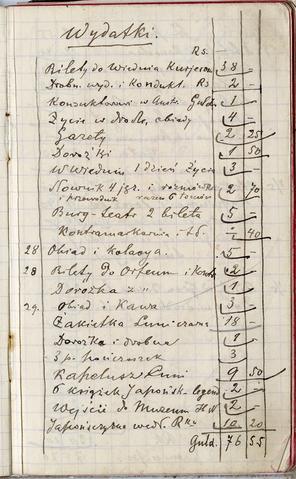 Wydatki.
Rs.
Bilety do Wiednia Kurjerem 38 –
Drobn. wyd. i Kondukt. Rs 2 –
Konduktorowi w Austr. Guld. 1
Życie w drodze, obiady 4 –
Gazety 2 25
Dorożki 1 50
W Wiedniu 1 dzień Życie 3 –
Słownik 4 jęz. i rozmówki 2 70
i przewodnik razem 6 tomów
Burg-teatr 2 bileta 5 –
Kontramarkarnia i t.d. – 40
28 Obiad i kolacya. 5 –
28 Bilety do Orfeum i 2 –
Dorożka z " 1
29. Obiad i Kawa 3 –
Żakietka Luni czarna 18 –
Dorożka i drobne 1
3 p. pończoszek 3
Kapelusz Luni 9 50
6 książek Japońsk. legend 2 –
Wejście do Muzeum 2 –
Japończyzna wedł. R 10 20
Guld. 76 55